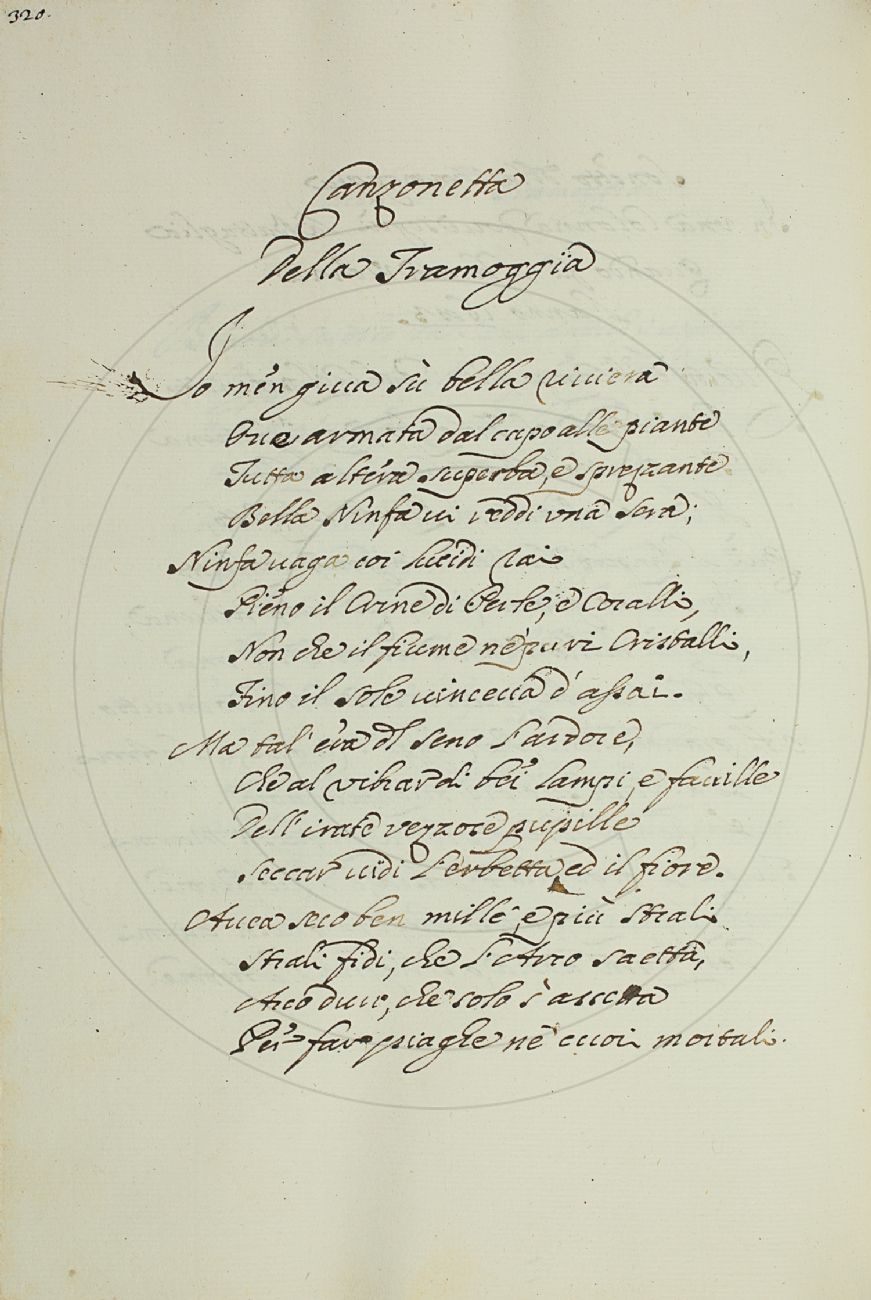 320.
Canzonetta
Della Tramoggia
Io me'n giua sù bella riuiera
Oue armata dal capo alle piante
Tutta altera superba, e sprezzante
Bella Ninfa ui viddi vna sera;
Ninfa uaga coi lucidi rai
Pieno il Crine di Perle, e Coralli,
Non che il fiume ne' puri Cristalli,
Fino il sole uinceua d'assai.
Ma tal' era del seno l'ardore,
Che al vibrar di bei lampi, e fauille
Dell'irate vezzose pupille
Seccar uidi l'erbetta, ed il fiore.
Auea seco ben mille, e più strali
Strali fidi, che l'Arco saetta,
Arco duro, che solo s'assetta
Per far piaghe ne cuori mortali.